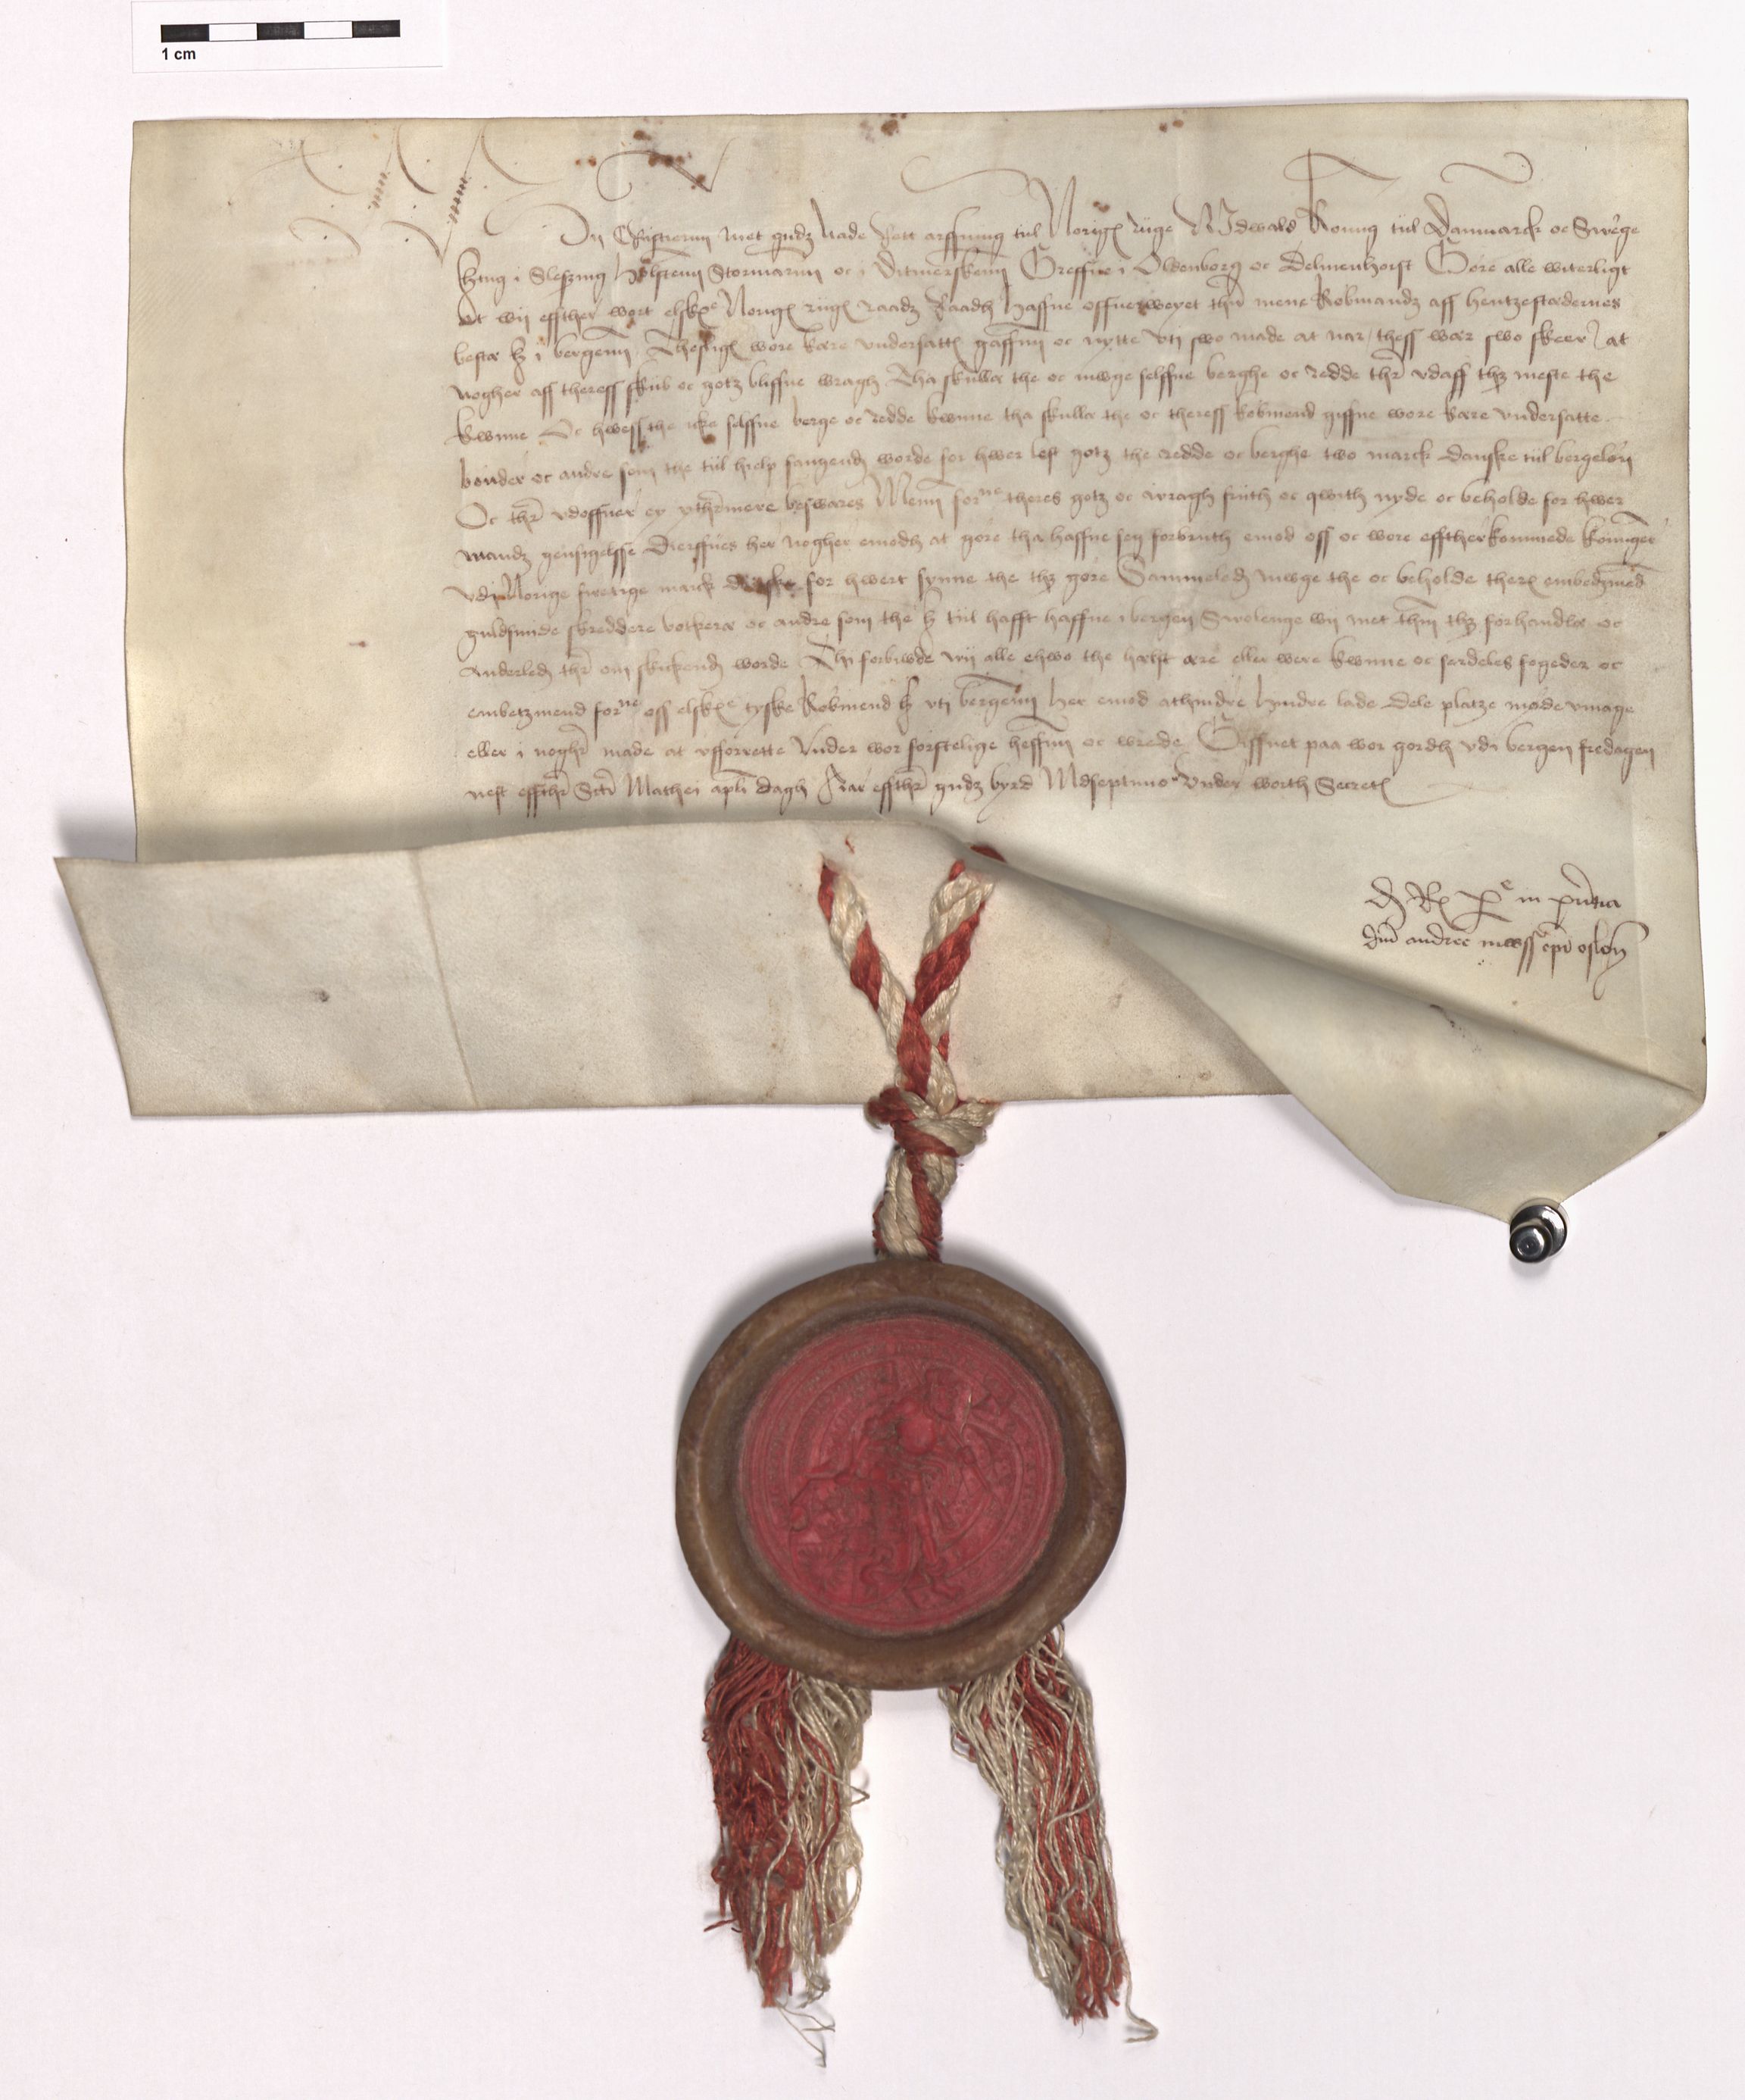 1 cm
Wij Christiernn met gudz nade Rett arffning tiil Norigs riige Vdwald Koning tiil Danmarck oc Swerige
htug i Sleszuig Holstenn Stormarnn oc i Ditmerskenn Greffue i Oldenborg oc Delmenhorst Göre alle witerligt
At wij effther wort elske Norigs riigs raadz Raadh haffue offuerweret thn mene Kobmandz aff hentzestædernes
beste h i bergenn Theslige wore kære vndersatte gaffnn oc nytte vti swo made at nar thess wær swo skeer at
nogher aff theress skiib oc gotz bliffue wragh Tha skulle the oc mwge selffue berghe oc redde thr vdaff thz meste the
kwnne Oc hwess the icke selffue berge oc redde kwnne tha skulle the oc theress kobmend giffue wore kære vndersatte
bönder oc andre som the tiil hielp fangendh worde for hwer lest gotz the redde oc berghe two marck danske tiil bergelön
Oc thr vdoffuer ey ythrmere beswares Menn forne theres gotz oc wragh friith oc qwith nyde oc beholde for hwer
mandz gensigelsse Dierffues her nogher emodh at göre tha haffue seg forbruth emod oss oc wore effther kommede koninger
vdj Norige firetige marck danske for hwert synne the thz göre Sammeledh mwge the oc beholde thers embedzmend
guldsmide skreddere botkere oc andre som the h tiil hafft haffue i bergen Swolenge wij met thm thz forhandle oc
anderledh thr om skickendh worde Thi forbiwde wij alle ehwo the helst ære eller were kwnne oc serdeles fogeder oc
embetzmend forne oss elske tyske Kobmend h vti bergenn her emod athindre hindre lade dele platze möde vmage
eller i noghr made at vfforrette Vnder wor forstelige heffnn oc wrede Giffuet paa wor gordh vdi bergen fredagen
nest effthr Scti Mathei apli dagh Aar effthr gudz byrd Mdseptimo Vnder worth Secrets
D Rx p e in pntia
dni andree mwss epi oslon